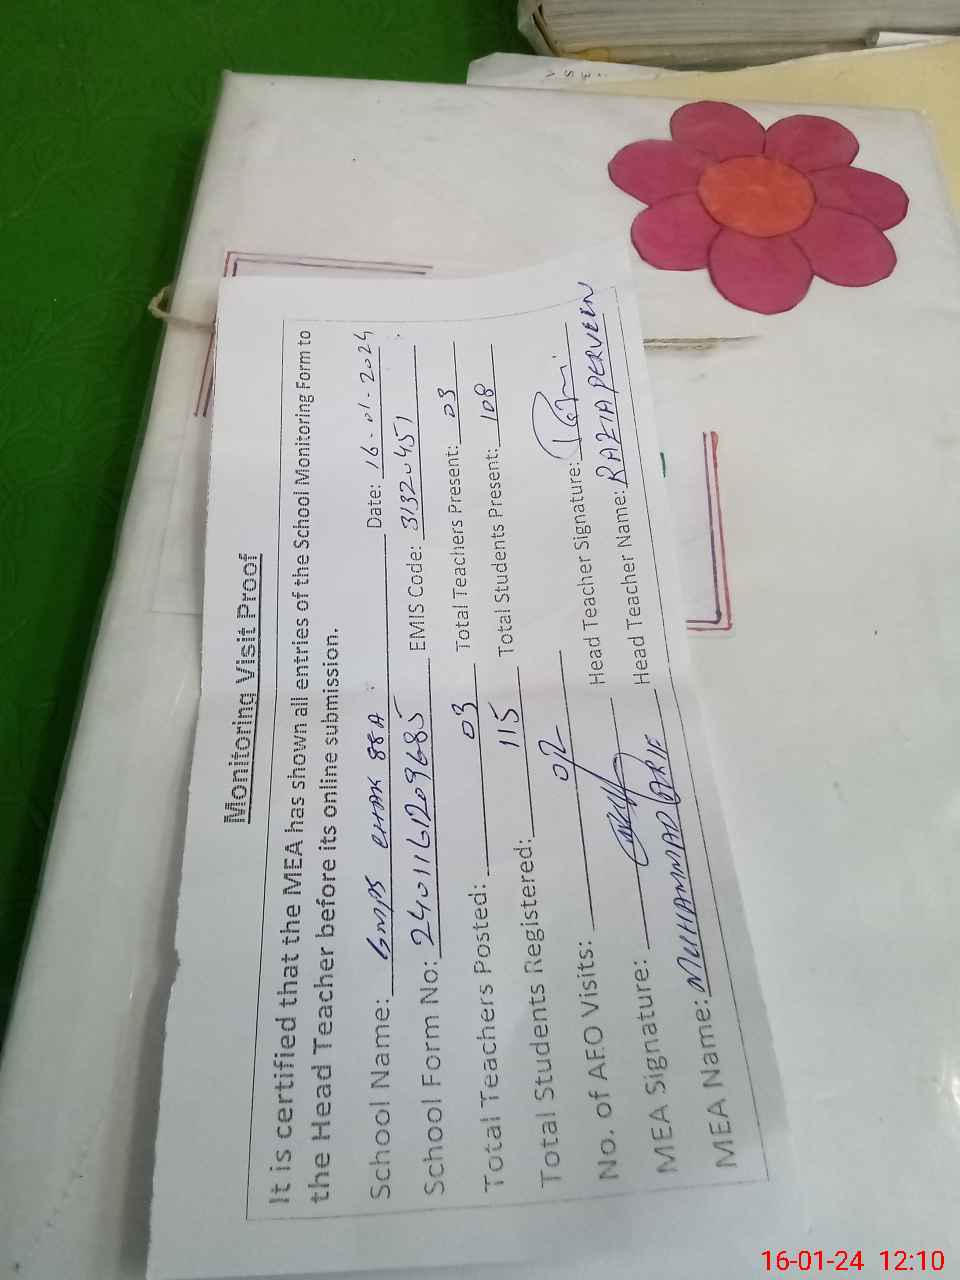 Monitoring Visit Proof
It is certified that the MEA has shown all entries of the School Monitoring Form to
the Head Teacher before its online submission.
School Name: GMPS CHAK 88A Date: 16-01-2024
School Form No: 2401161209685 EMIS Code: 31320451
Total Teachers Posted: 03 Total Teachers Present: 03
Total Students Registered: 115 Total Students Present: 108
No. of AEO Visits: 02
MEA Signature: Head Teacher Signature:
MEA Name: MUHAMMAD Head Teacher Name: RAZIA PERVEEN
16-01-24 12:10